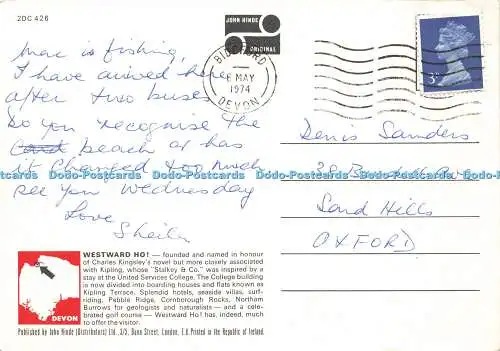 2DC 426
JOHN HINDE
ORIGINAL
BIDEFORD
6 MAY
1974
DEVON
3P
Mac is fishing,
I have arrived here
after two buses
Do you recognise the
beach or has
it changed too much
see you Wednesday
Love
Sheila
Denis Sanders
Sand Hills
OXFORD
Dodo-Postcards Dodo-Postcards Dodo-Postcards Dodo-Postcards
WESTWARD HO! — founded and named in honour
of Charles Kingsley's novel but more closely associated
with Kipling, whose "Stalkey & Co." was inspired by a
stay at the United Services College. The College building
is now divided into boarding houses and flats known as
Kipling Terrace. Splendid hotels, seaside villas, surf-
riding, Pebble Ridge, Cornborough Rocks, Northam
Burrows for geologists and naturalists — and a cele-
brated golf course — Westward Ho! has, indeed, much
to offer the visitor.
DEVON
Published by John Hinde (Distributors) Ltd., 3/5, Dunn Street, London, E.8. Printed in the Republic of Ireland.